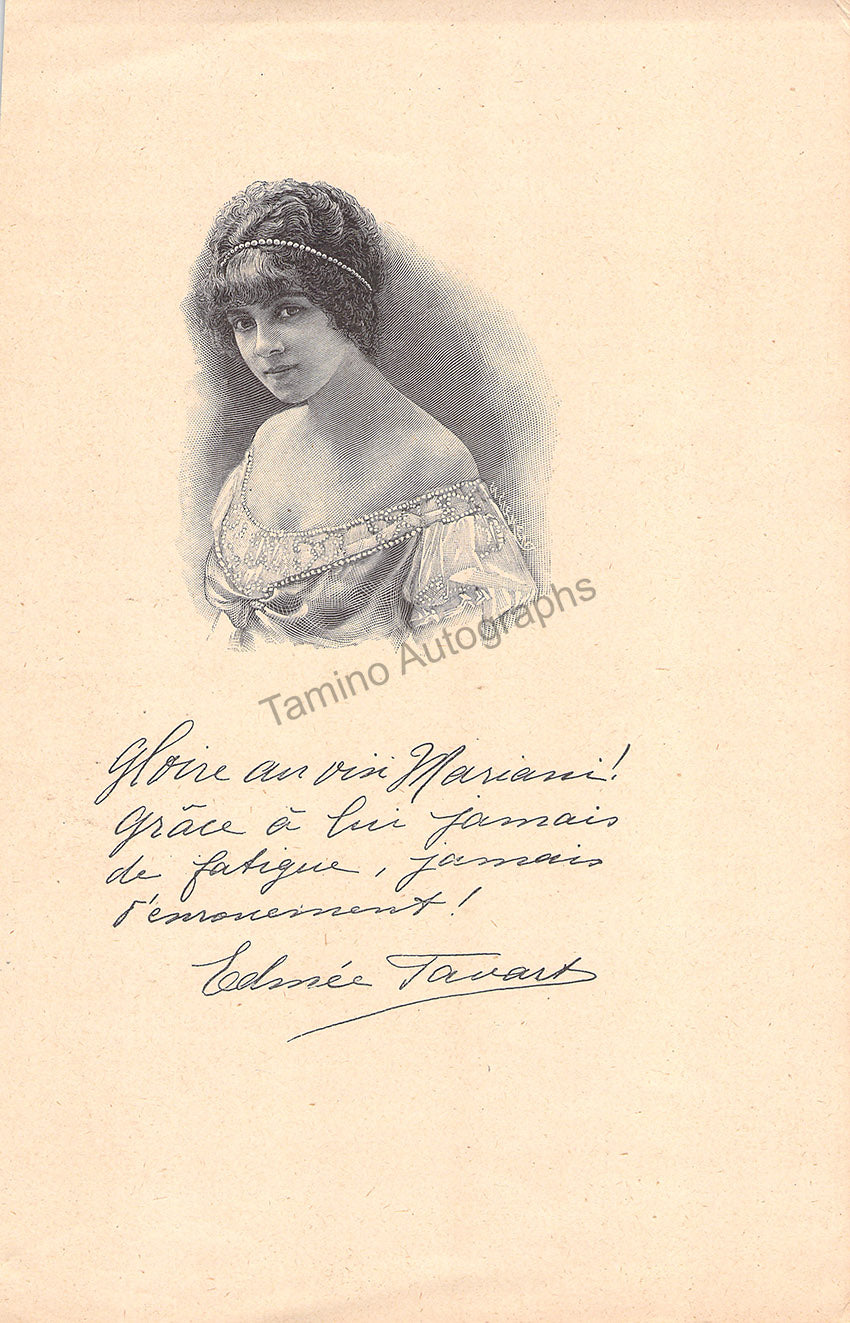 Tamino Autographs
Gloire au vin Mariani!
Grâce à lui jamais
de fatigue, jamais
d'enrouement!
Edmée Favart